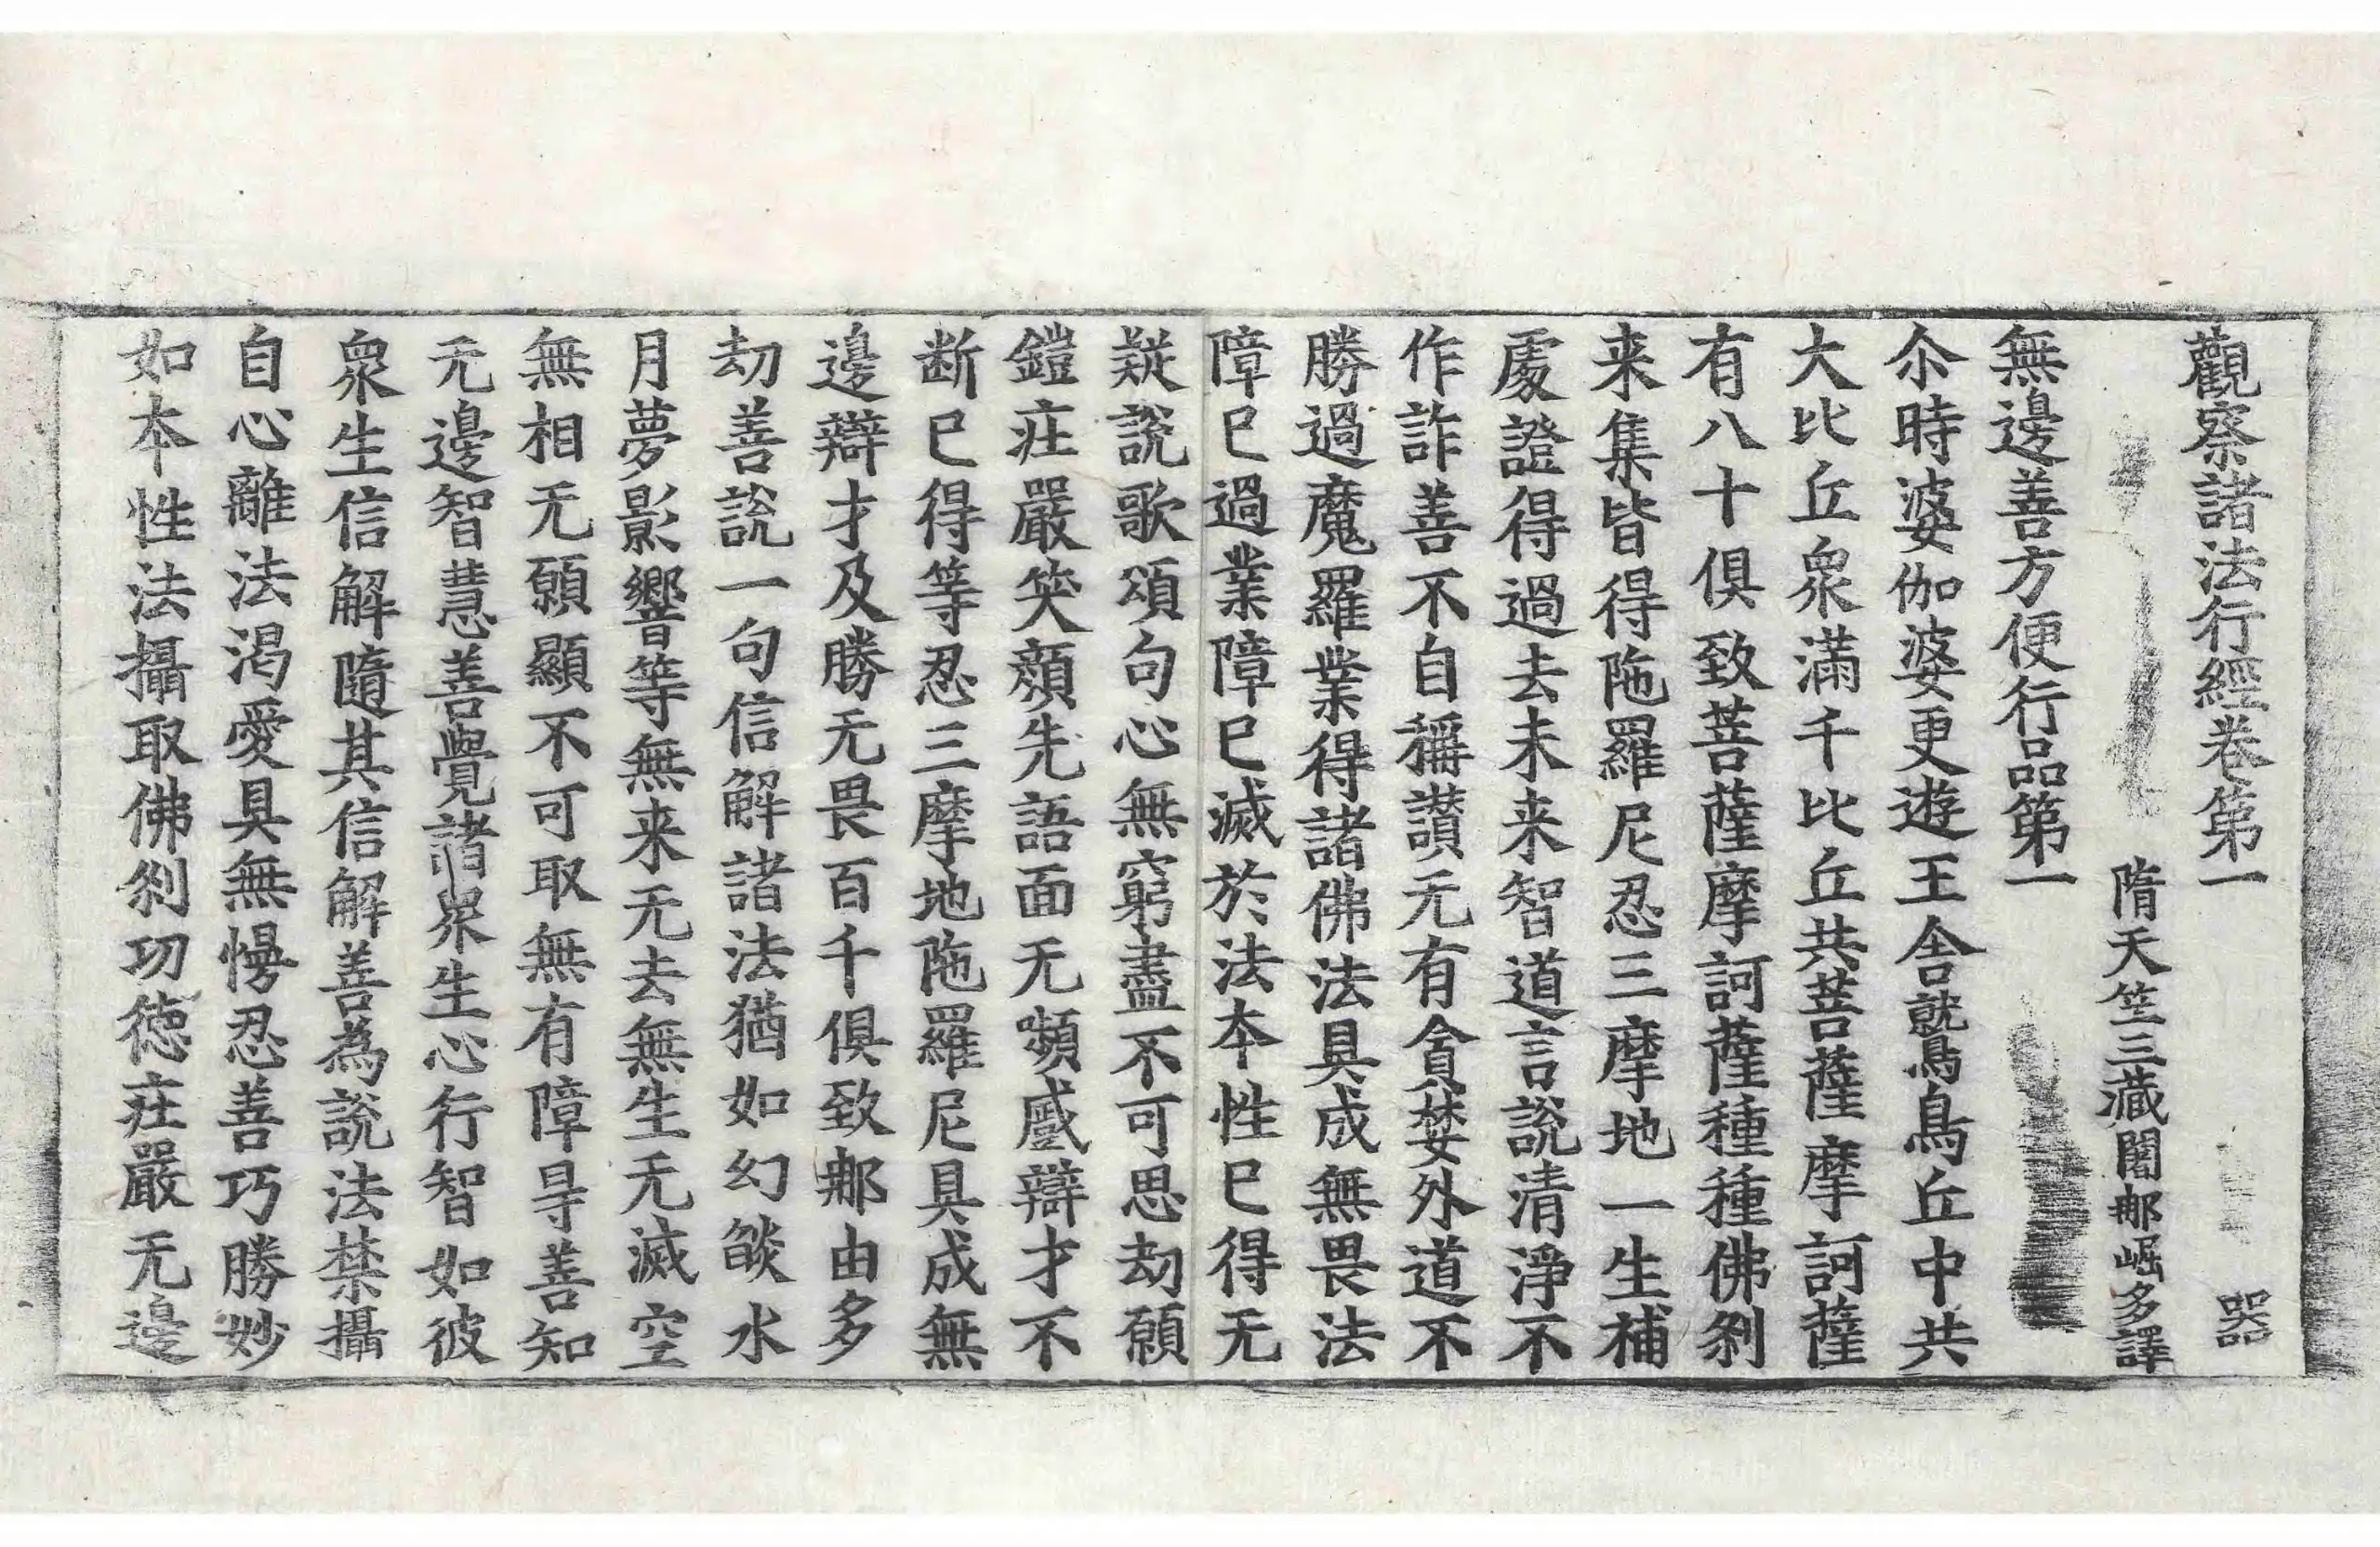 觀察諸法行經卷第一 器
隋天竺三藏闍那崛多譯
無邊善方便行品第一
尒時婆伽婆更遊王舍鷲鳥丘中共
大比丘衆滿千比丘共菩薩摩訶薩
有八十俱致菩薩摩訶薩種種佛刹
来集皆得陁羅尼忍三摩地一生補
處證得過去未来智道言說清淨不
作詐善不自稱讃无有貪婪外道不
勝過魔羅業得諸佛法具成無畏法
障已過業障已滅於法本性已得无
疑說歌頌句心無窮盡不可思劫願
鎧莊嚴笑顔先語面无嚬慼辯才不
断已得等忍三摩地陁羅尼具成無
邊辯才及勝无畏百千俱致那由多
劫善說一句信解諸法猶如幻燄水
月夢影響等無来无去無生无滅空
無相无願顯不可取無有障㝵善知
无邊智慧善覺諸衆生心行智如彼
衆生信解隨其信解善為說法禁攝
自心離法渴愛具無慢忍善巧勝妙
如本性法攝取佛刹功徳莊嚴无邊